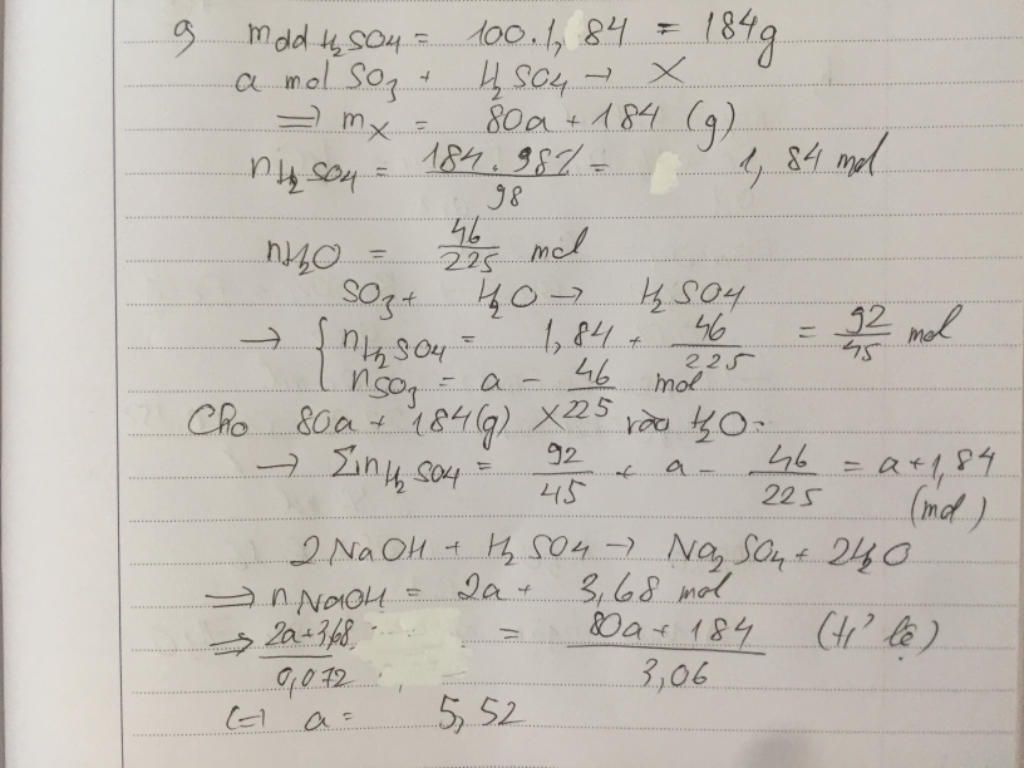 g m dd H₂SO₄ = 100.1,84 = 184g
a mol SO₃ + H₂SO₄ → X
⇒ mₓ = 80a + 184 (g)
nH₂SO₄ = 184.98%/98 = 1,84 mol
nH₂O = 46/225 mol
SO₃ + H₂O → H₂SO₄
→ { nH₂SO₄ = 1,84 + 46/225 = 92/45 mol
nSO₃ = a - 46/225 mol
Cho 80a + 184(g) X vào H₂O.
→ ΣnH₂SO₄ = 92/45 + a - 46/225 = a + 1,84
(mol)
2NaOH + H₂SO₄ → Na₂SO₄ + 2H₂O
⇒ nNaOH = 2a + 3,68 mol
⇒ 2a+3,68/0,072 = 80a + 184/3,06 (tỉ lệ)
(=) a = 5,52